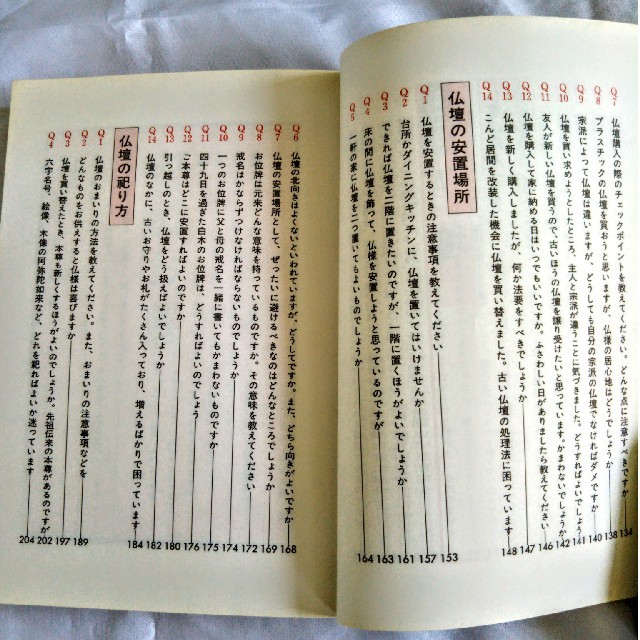 Q7 仏壇購入の際のチェックポイントを教えてください。どんな点に注意すべきですか 134
Q8 プラスチックの仏壇を買おうと思いますが、仏様の居心地はどうでしょうか 138
Q9 宗派によって仏壇は違いますが、どうしても自分の宗派の仏壇でなければダメですか 140
Q10 仏壇を買い求めようとしたところ、主人と宗派が違うことに気づきました。どうすればよいでしょう 141
Q11 友人が新しい仏壇を買うので、古いほうの仏壇を譲り受けたいと思っています。かまわないでしょうか 142
Q12 仏壇を購入して家に納める日はいつでもいいですか。ふさわしい日がありましたら教えてください 146
Q13 仏壇を新しく購入しましたが、何か法要をすべきでしょうか 147
Q14 こんど居間を改装した機会に仏壇を買い替えました。古い仏壇の処理法に困っています 148
仏壇の安置場所
Q1 仏壇を安置するときの注意事項を教えてください 153
Q2 台所かダイニングキッチンに、仏壇を置いてはいけませんか 157
Q3 できれば仏壇を二階に置きたいのですが、一階に置くほうがよいでしょうか 161
Q4 床の間に仏壇を飾って、仏様を安置しようと思っているのですが 163
Q5 一軒の家に仏壇を二つ置いてもよいものでしょうか 164
Q6 仏壇の北向きはよくないといわれていますが、どうしてですか。また、どちら向きがよいですか 168
Q7 仏壇の安置場所として、ぜったいに避けるべきなのはどんなところでしょうか 169
Q8 お位牌は元来どんな意味を持っているものですか。その意味を教えてください 172
Q9 戒名はかならずつけなければならないものでしょうか 174
Q10 一つのお位牌に父と母の戒名を一緒に書いてもかまわないものですか 175
Q11 四十九日を過ぎた白木のお位牌は、どうすればよいのでしょう 176
Q12 ご本尊はどこに安置すればよいのですか 180
Q13 引っ越しのとき、仏壇をどう扱えばよいでしょうか 182
Q14 仏壇のなかに、古いお守りやお札がたくさん入っており、増えるばかりで困っています 184
仏壇の祀り方
Q1 仏壇のおまいりの方法を教えてください。また、おまいりの注意事項などを 189
Q2 どんなものをお供えすると仏様は喜びますか 197
Q3 仏壇を買い替えたとき、本尊も新しくするほうがよいのでしょうか。先祖伝来の本尊があるのですが 202
Q4 六字名号、絵像、木像の阿弥陀如来など、どれを祀ればよいか迷っています 204